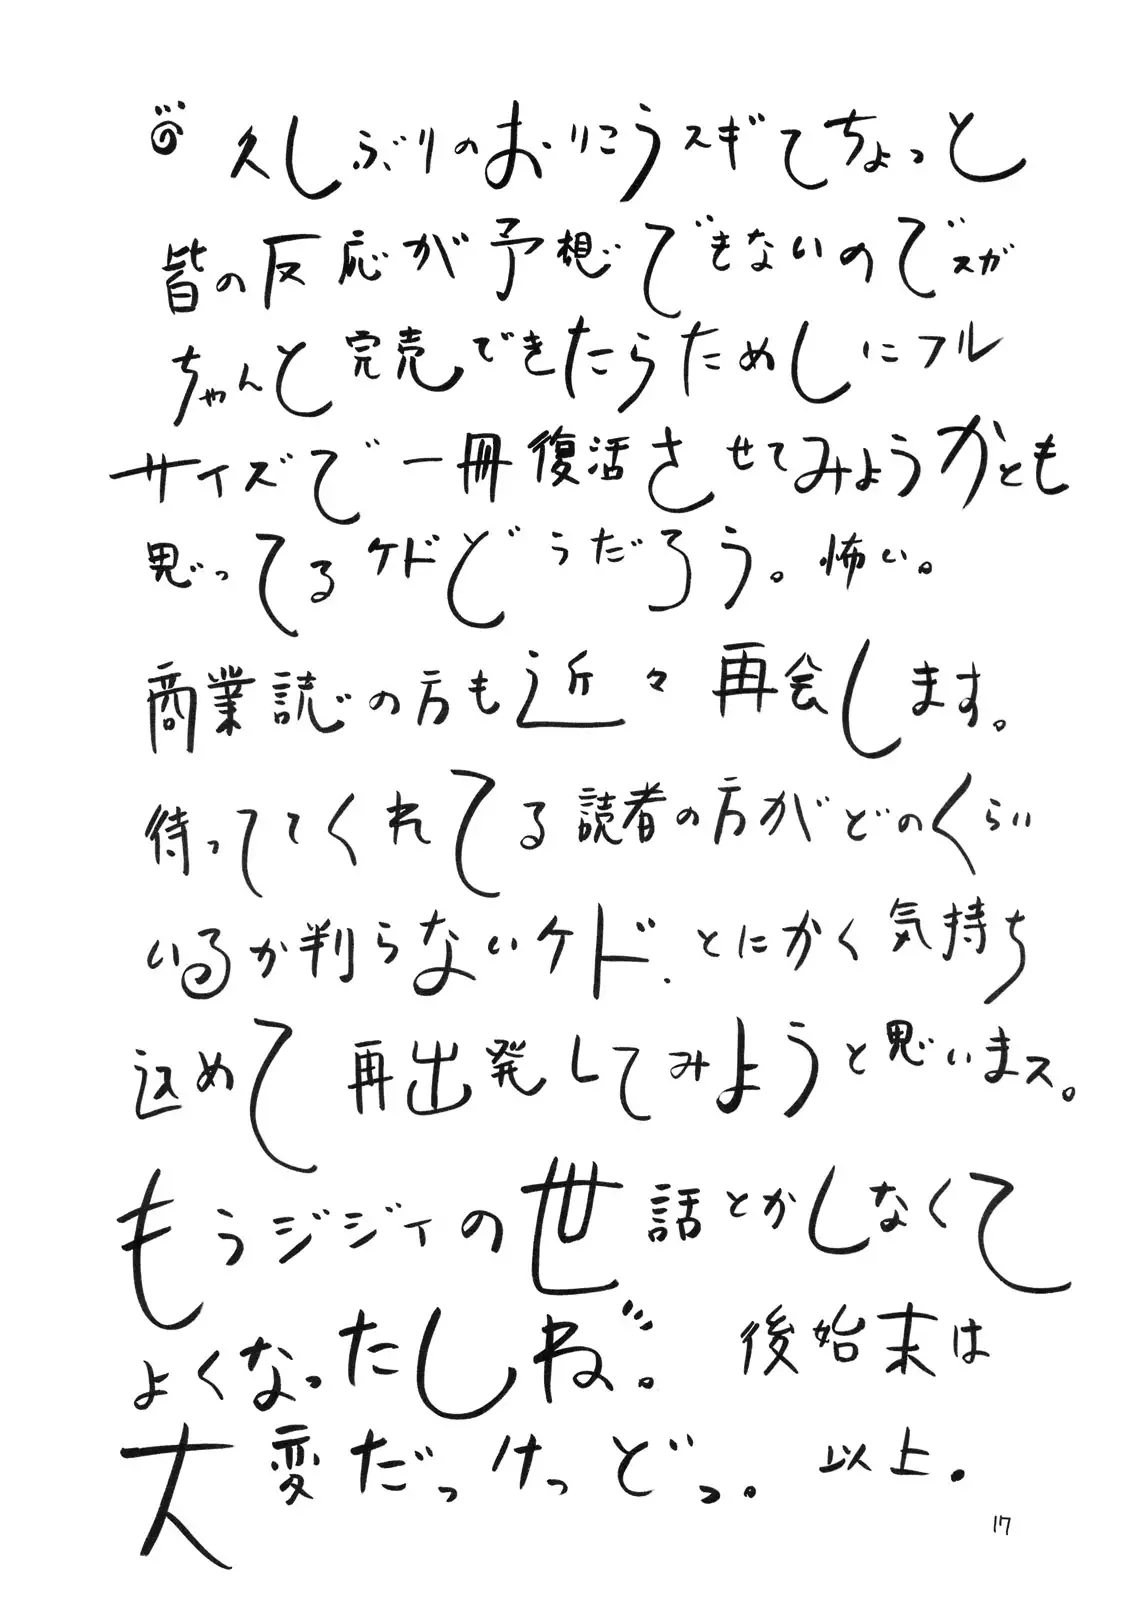 久しぶりのおりこうスギてちょっと
皆の反応が予想できないのでスガ
ちゃんと完売できたらためしにフル
サイズで一冊復活させてみようかとも
思ってるケドどうだろう。怖い。
商業誌の方も近々再会します。
待っててくれてる読者の方がどのくらい
いるか判らないケド、とにかく気持ち
込めて再出発してみようと思いまス。
もうジジィの世話とかしなくて
よくなったしね。後始末は
大変だっけっどっ。以上.
17